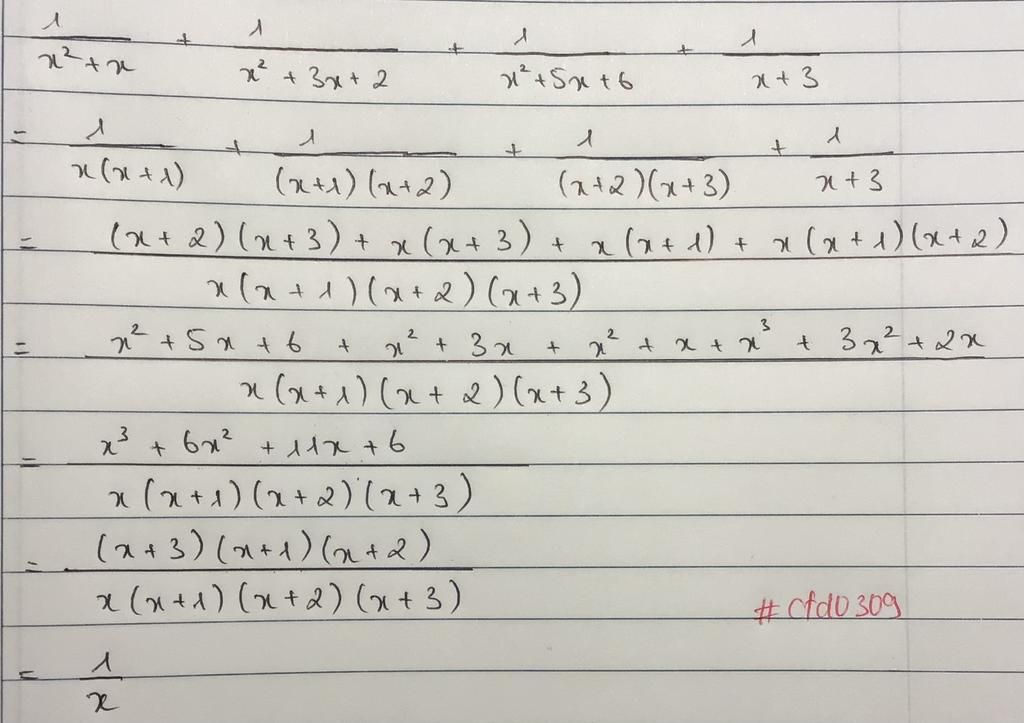 1/(x² + x) + 1/(x² + 3x + 2) + 1/(x² + 5x + 6) + 1/(x + 3)
= 1/(x(x + 1)) + 1/((x+1)(x+2)) + 1/((x+2)(x+3)) + 1/(x + 3)
= ((x + 2)(x + 3) + x(x + 3) + x(x + 1) + x(x + 1)(x + 2))/(x(x + 1)(x + 2)(x + 3))
= (x² + 5x + 6 + x² + 3x + x² + x + x³ + 3x² + 2x)/(x(x + 1)(x + 2)(x + 3))
= (x³ + 6x² + 11x + 6)/(x(x + 1)(x + 2)(x + 3))
= ((x + 3)(x + 1)(x + 2))/(x(x + 1)(x + 2)(x + 3))
#cfd0309
= 1/x